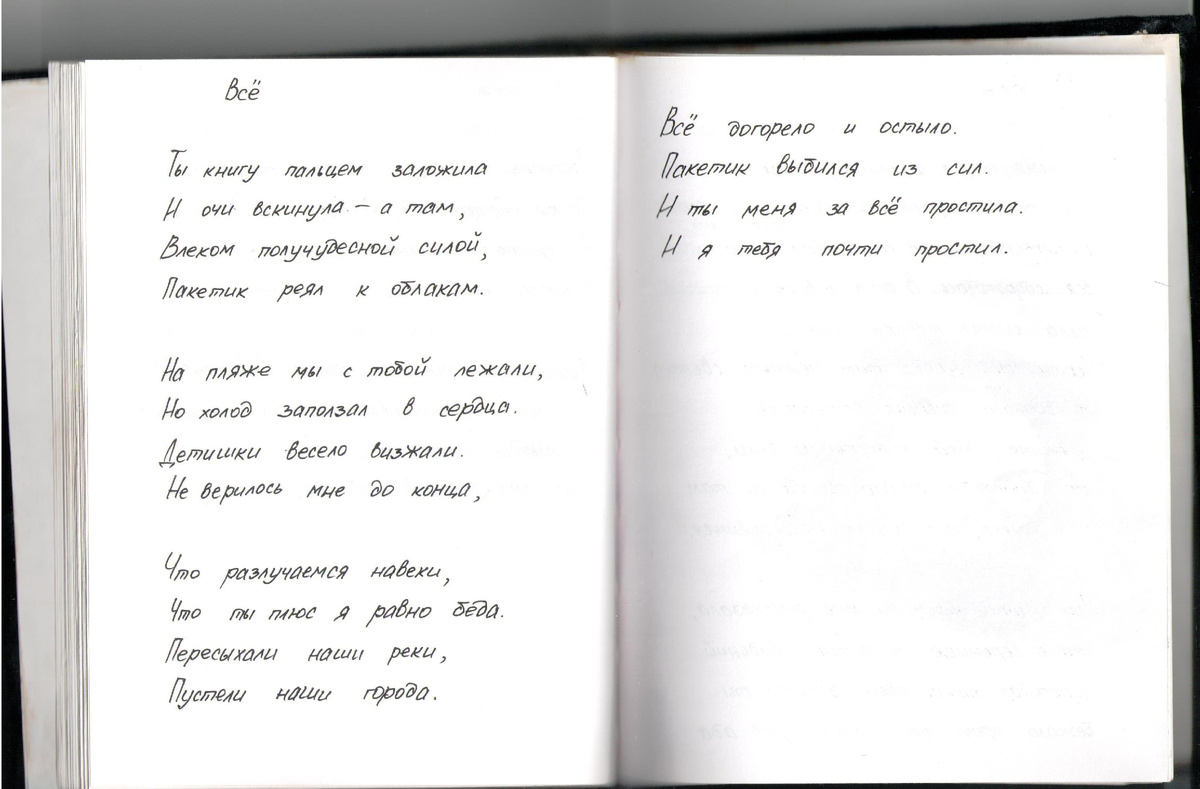 Всё
Ты книгу пальцем заложила
И очи вскинула – а там,
Влеком получудесной силой,
Пакетик реял к облакам.
На пляже мы с тобой лежали,
Но холод заползал в сердца.
Детишки весело визжали.
Не верилось мне до конца,
Что разлучаемся навеки,
Что ты плюс я равно беда.
Пересыхали наши реки,
Пустели наши города.
Всё догорело и остыло.
Пакетик выбился из сил.
И ты меня за всё простила.
И я тебя почти простил.